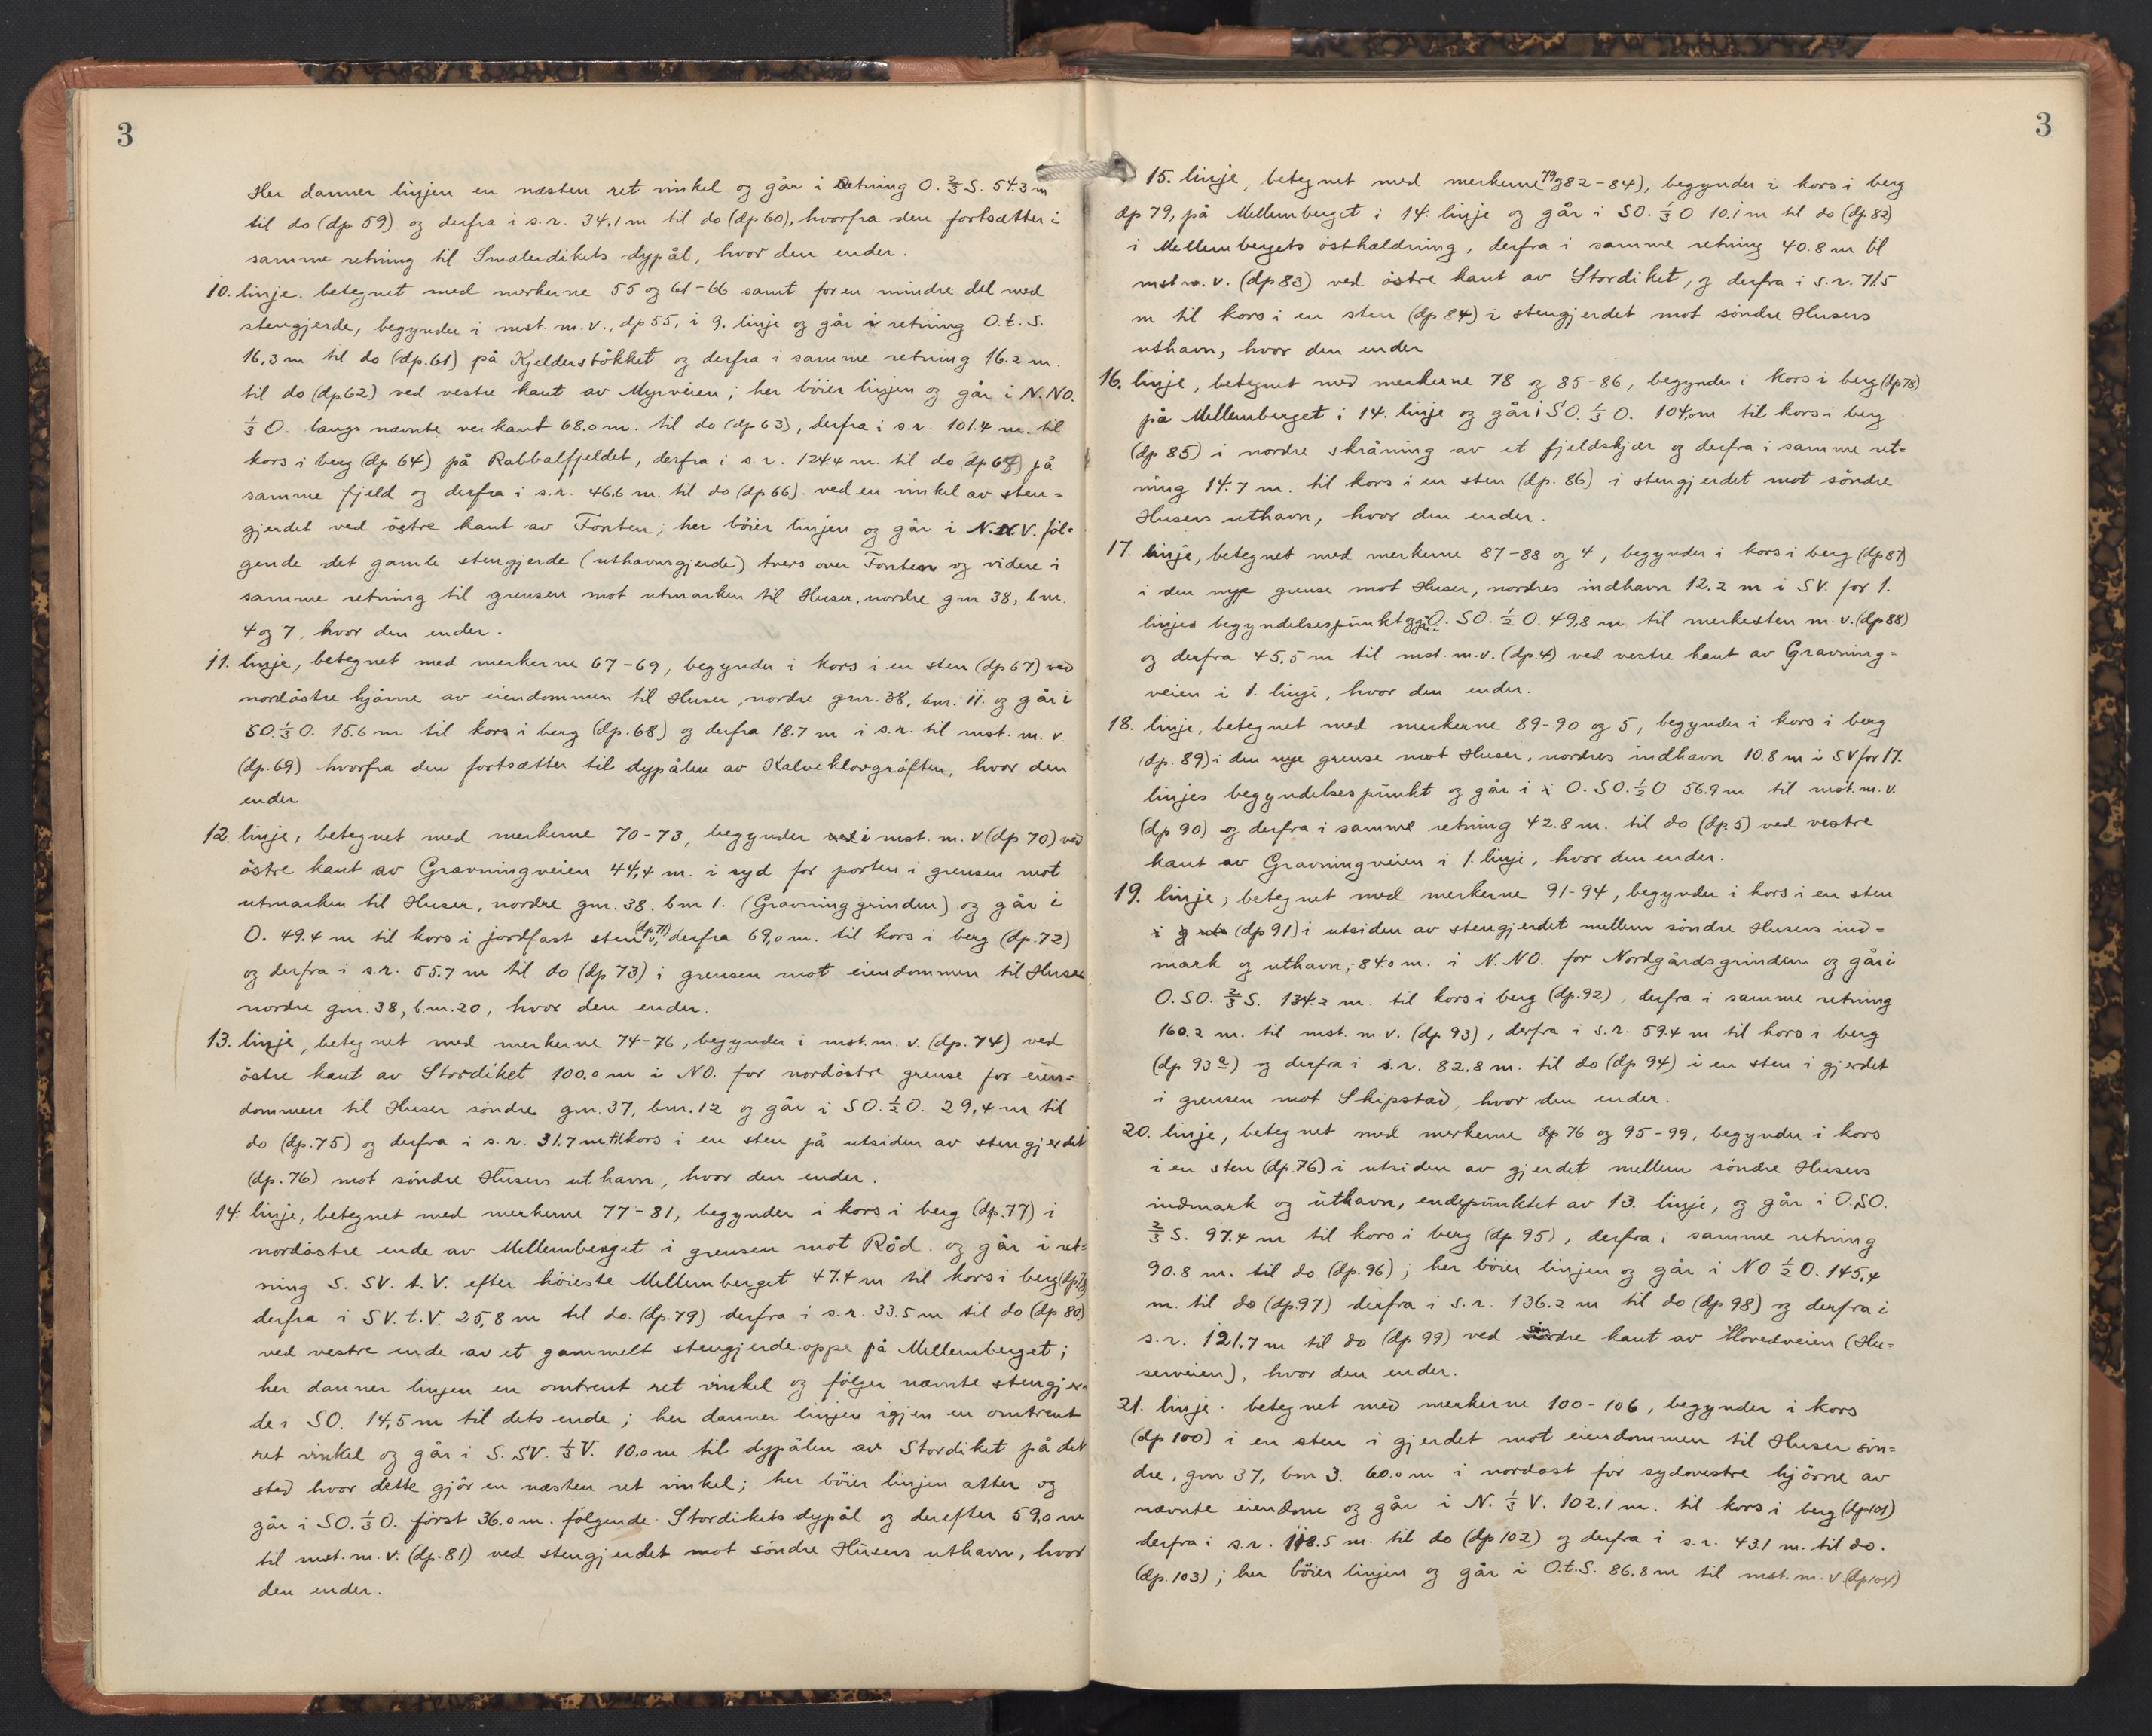 3
Her danner linjen en næsten ret vinkel og går i Retning O. 2/3 S. 54.3 m
til do (dp 59) og derfra i s.r. 34.1 m til do (dp 60), hvorfra den fortsætter i
samme retning til Smælerdikets dypål, hvor den ender.
10. linje. betegnet med merkerne 55 og 61-66 samt for en mindre del med
stengjerde, begynder i mst. m.v., dp 55, i 9. linje og går i retning O.t.S.
16,3 m til do (dp.61) på Kjelderstökket og derfra i samme retning 16.2 m.
til do (dp 62) ved vestre kant av Myrveien; her böier linjen og går i N.NO.
1/3 O. langs nævnte veikant 68.0 m. til do (dp 63), derfra i s.r. 101.4 m. til
kors i berg (dp. 64) på Rabbalfjeldet, derfra i s.r. 124.4 m. til do (dp 65) på
samme fjeld og derfra i s.r. 46.6 m. til do (dp 66). ved en vinkel av sten=
gjerdet ved östre kant av Fonten; her böier linjen og går i N.N.V. föl=
gende det gamle stengjerde (uthavnsgjerde) tvers over Fonten og videre i
samme retning til grensen mot utmarken til Huser, nordre gnr 38, bnr.
4 og 7, hvor den ender.
11. linje, betegnet med merkerne 67-69, begynder i kors i en sten (dp 67) ved
nordöstre hjörne av eiendommen til Huser, nordre gnr. 38, bnr. 11. og går i
SO. 1/3 O. 15.6 m til kors i berg (dp. 68) og derfra 18.7 m i s.r. til mst. m. v.
(dp. 69) hvorfra den fortsætter til dypålen av Kalveklovgröften, hvor den
ender
12. linje, betegnet med merkerne 70-73, begynder ved i mst. m. v (dp 70) ved
östre kant av Gravningveien 44,4 m. i syd for porten i grensen mot
utmarken til Huser, nordre gnr. 38. bnr 1. (Gravninggrinden) og går i
O. 49.4 m til kors i jordfast sten (dp. 71), derfra 69,0 m. til kors i berg (dp. 72)
og derfra i s.r. 55.7 m til do (dp 73) i grensen mot eiendommen til Huser
nordre gnr. 38, b.nr. 20, hvor den ender.
13. linje, betegnet med merkerne 74-76, begynder i mst. m. v. (dp. 74) ved
östre kant av Stordiket 100.0 m i NO. for nordöstre grense for eien=
dommen til Huser söndre gnr. 37, bnr. 12 og går i SO. 1/2 O. 29,4 m til
do (dp. 75) og derfra i s.r. 31.7 m til kors i en sten på utsiden av stengjerdet
(dp. 76) mot söndre Husers uthavn, hvor den ender.
14. linje, betegnet med merkerne 77-81, begynder i kors i berg (dp. 77) i
nordöstre ende av Mellemberget i grensen mot Röd. og går i ret=
ning S. SV. t. V. efter höieste Mellemberget 47.4 m til kors i berg (dp 78)
derfra i SV. t. V. 25,8 m til do. (dp. 79) derfra i s.r. 33.5 m til do (dp 80)
ved vestre ende av et gammelt stengjerde oppe på Mellemberget;
her danner linjen en omtrent ret vinkel og fölger nævnte stengjer=
de i SO. 14,5 m til dets ende; her danner linjen igjen en omtrent
ret vinkel og går i S. SV. 1/3 V. 10.0 m. til dypålen av Stordiket på det
sted hvor dette gjör en næsten ret vinkel; her böier linjen atter og
går i SO. 1/3 O. först 36.0 m. fölgende Stordikets dypål og derefter 59,0 m
til mst. m. v. (dp. 81) ved stengjerdet mot söndre Husers uthavn, hvor
den ender.
3
15. linje, betegnet med merkerne 79 og 82-84), begynder i kors i berg
dp 79, på Mellemberget i 14. linje og går i SO. 1/3 O 10.1 m til do (dp. 82)
i Mellembergets östhældning, derfra i samme retning 40.8 m til
mst m. v. (dp 83) ved östre kant av Stordiket, og derfra i s.r. 71.5
m til kors i en sten (dp 84) i stengjerdet mot söndre Husers
uthavn, hvor den ender
16. linje, betegnet med merkerne 78 og 85-86, begynder i kors i berg (dp 78)
på Mellemberget i 14. linje og går i SO. 1/3 O. 104,0 m til kors i berg
(dp 85) i nordre skråning av et fjeldskjær og derfra i samme ret=
ning 14.7 m. til kors i en sten (dp. 86) i stengjerdet mot söndre
Husers uthavn, hvor den ender.
17. linje, betegnet med merkerne 87-88 og 4, begynder i kors i berg (dp 87)
i den nye grense mot Huser, nordres indhavn 12.2 m i SV. for 1.
linjes begyndelsespunkt og går i O. SO. 1/2 O. 49,8 m til merkesten m. v. (dp 88)
og derfra 45,5 m til mst. m.v. (dp. 4) ved vestre kant av Gravning=
veien i 1. linje, hvor den ender.
18. linje, betegnet med merkerne 89-90 og 5, begynder i kors i berg
(dp. 89) i den nye grense mot Huser, nordres indhavn 10.8 m i SV for 17.
linjes begyndelsespunkt og går i i O. SO. 1/2 O 56.9 m til mst. m. v.
(dp 90) og derfra i samme retning 42.8 m. til do (dp. 5) ved vestre
kant av Gravningveien i 1. linje, hvor den ender.
19. linje, betegnet med merkerne 91-94, begynder i kors i en sten
(dp 91) i utsiden av stengjerdet mellem söndre Husers ind=
mark og uthavn, 84.0 m. i N. NO. for Nordgårdsgrinden og går i
O. SO. 2/3 S. 134.2 m. til kors i berg (dp. 92), derfra i samme retning
160.2 m. til mst. m.v. (dp 93), derfra i s.r. 59.4 m til kors i berg
(dp 93a) og derfra i s.r. 82.8 m. til do (dp 94) i en sten i gjerdet
i grensen mot Skipstad, hvor den ender.
20. linje, betegnet med merkerne dp 76 og 95-99, begynder i kors
i en sten (dp. 76) i utsiden av gjerdet mellem söndre Husers
indmark og uthavn, endepunktet av 13. linje, og går i O.SO.
2/3 S. 97.4 m til kors i berg (dp. 95), derfra i samme retning
90.8 m. til do (dp. 96); her böier linjen og går i NO 1/2 O. 145,4
m. til do (dp. 97) derfra i s.r. 136.2 m til do (dp 98) og derfra i
s.r. 121.7 m til do (dp 99) ved söndre kant av Hovedveien (Hu=
serveien), hvor den ender.
21. linje. betegnet med merkerne 100-106, begynder i kors
(dp 100) i en sten i gjerdet mot eiendommen til Huser sön=
dre, gnr. 37, bnr 3. 60.0 m i nordost for sydvestre hjörne av
nævnte eiendom og går i N. 1/3 V. 102.1 m. til kors i berg (dp 101)
derfra i s.r. 118.5 m. til do (dp 102) og derfra i s.r. 43.1 m. til do.
(dp. 103); her böier linjen og går i O.t.S. 86.8 m til mst. m. v. (dp 104)